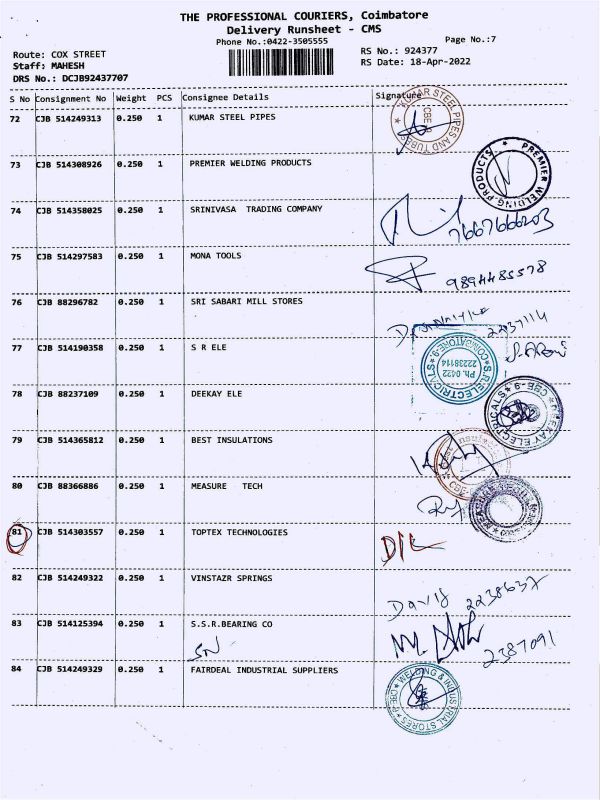 THE PROFESSIONAL COURIERS, Coimbatore
Delivery Runsheet - CMS
Phone No.:0422-3505555
Page No.:7
Route: COX STREET
RS No.: 924377
Staff: MAHESH
RS Date: 18-Apr-2022
DRS No.: DCJB92437707
S No Consignment No Weight PCS Consignee Details Signature
72 CJB 514249313 0.250 1 KUMAR STEEL PIPES
KUMAR STEEL PIPES AND TUBES
CBE
73 CJB 514308926 0.250 1 PREMIER WELDING PRODUCTS
PREMIER WELDING PRODUCTS
74 CJB 514358025 0.250 1 SRINIVASA TRADING COMPANY
7667666203
75 CJB 514297583 0.250 1 MONA TOOLS
9894485578
76 CJB 88296782 0.250 1 SRI SABARI MILL STORES
2237114
77 CJB 514190358 0.250 1 S R ELE
S.R.ELECTRICALS COIMBATORE-9
Ph. 0422
22238114
78 CJB 88237109 0.250 1 DEEKAY ELE
DEEKAY ELECTRICALS CBE-9
79 CJB 514365812 0.250 1 BEST INSULATIONS
80 CJB 88366886 0.250 1 MEASURE TECH
81 CJB 514303557 0.250 1 TOPTEX TECHNOLOGIES
D/L
82 CJB 514249322 0.250 1 VINSTAZR SPRINGS
David 2238637
83 CJB 514125394 0.250 1 S.S.R.BEARING CO
SN
2387091
84 CJB 514249329 0.250 1 FAIRDEAL INDUSTRIAL SUPPLIERS
WELDING & INDUSTRIAL STORES